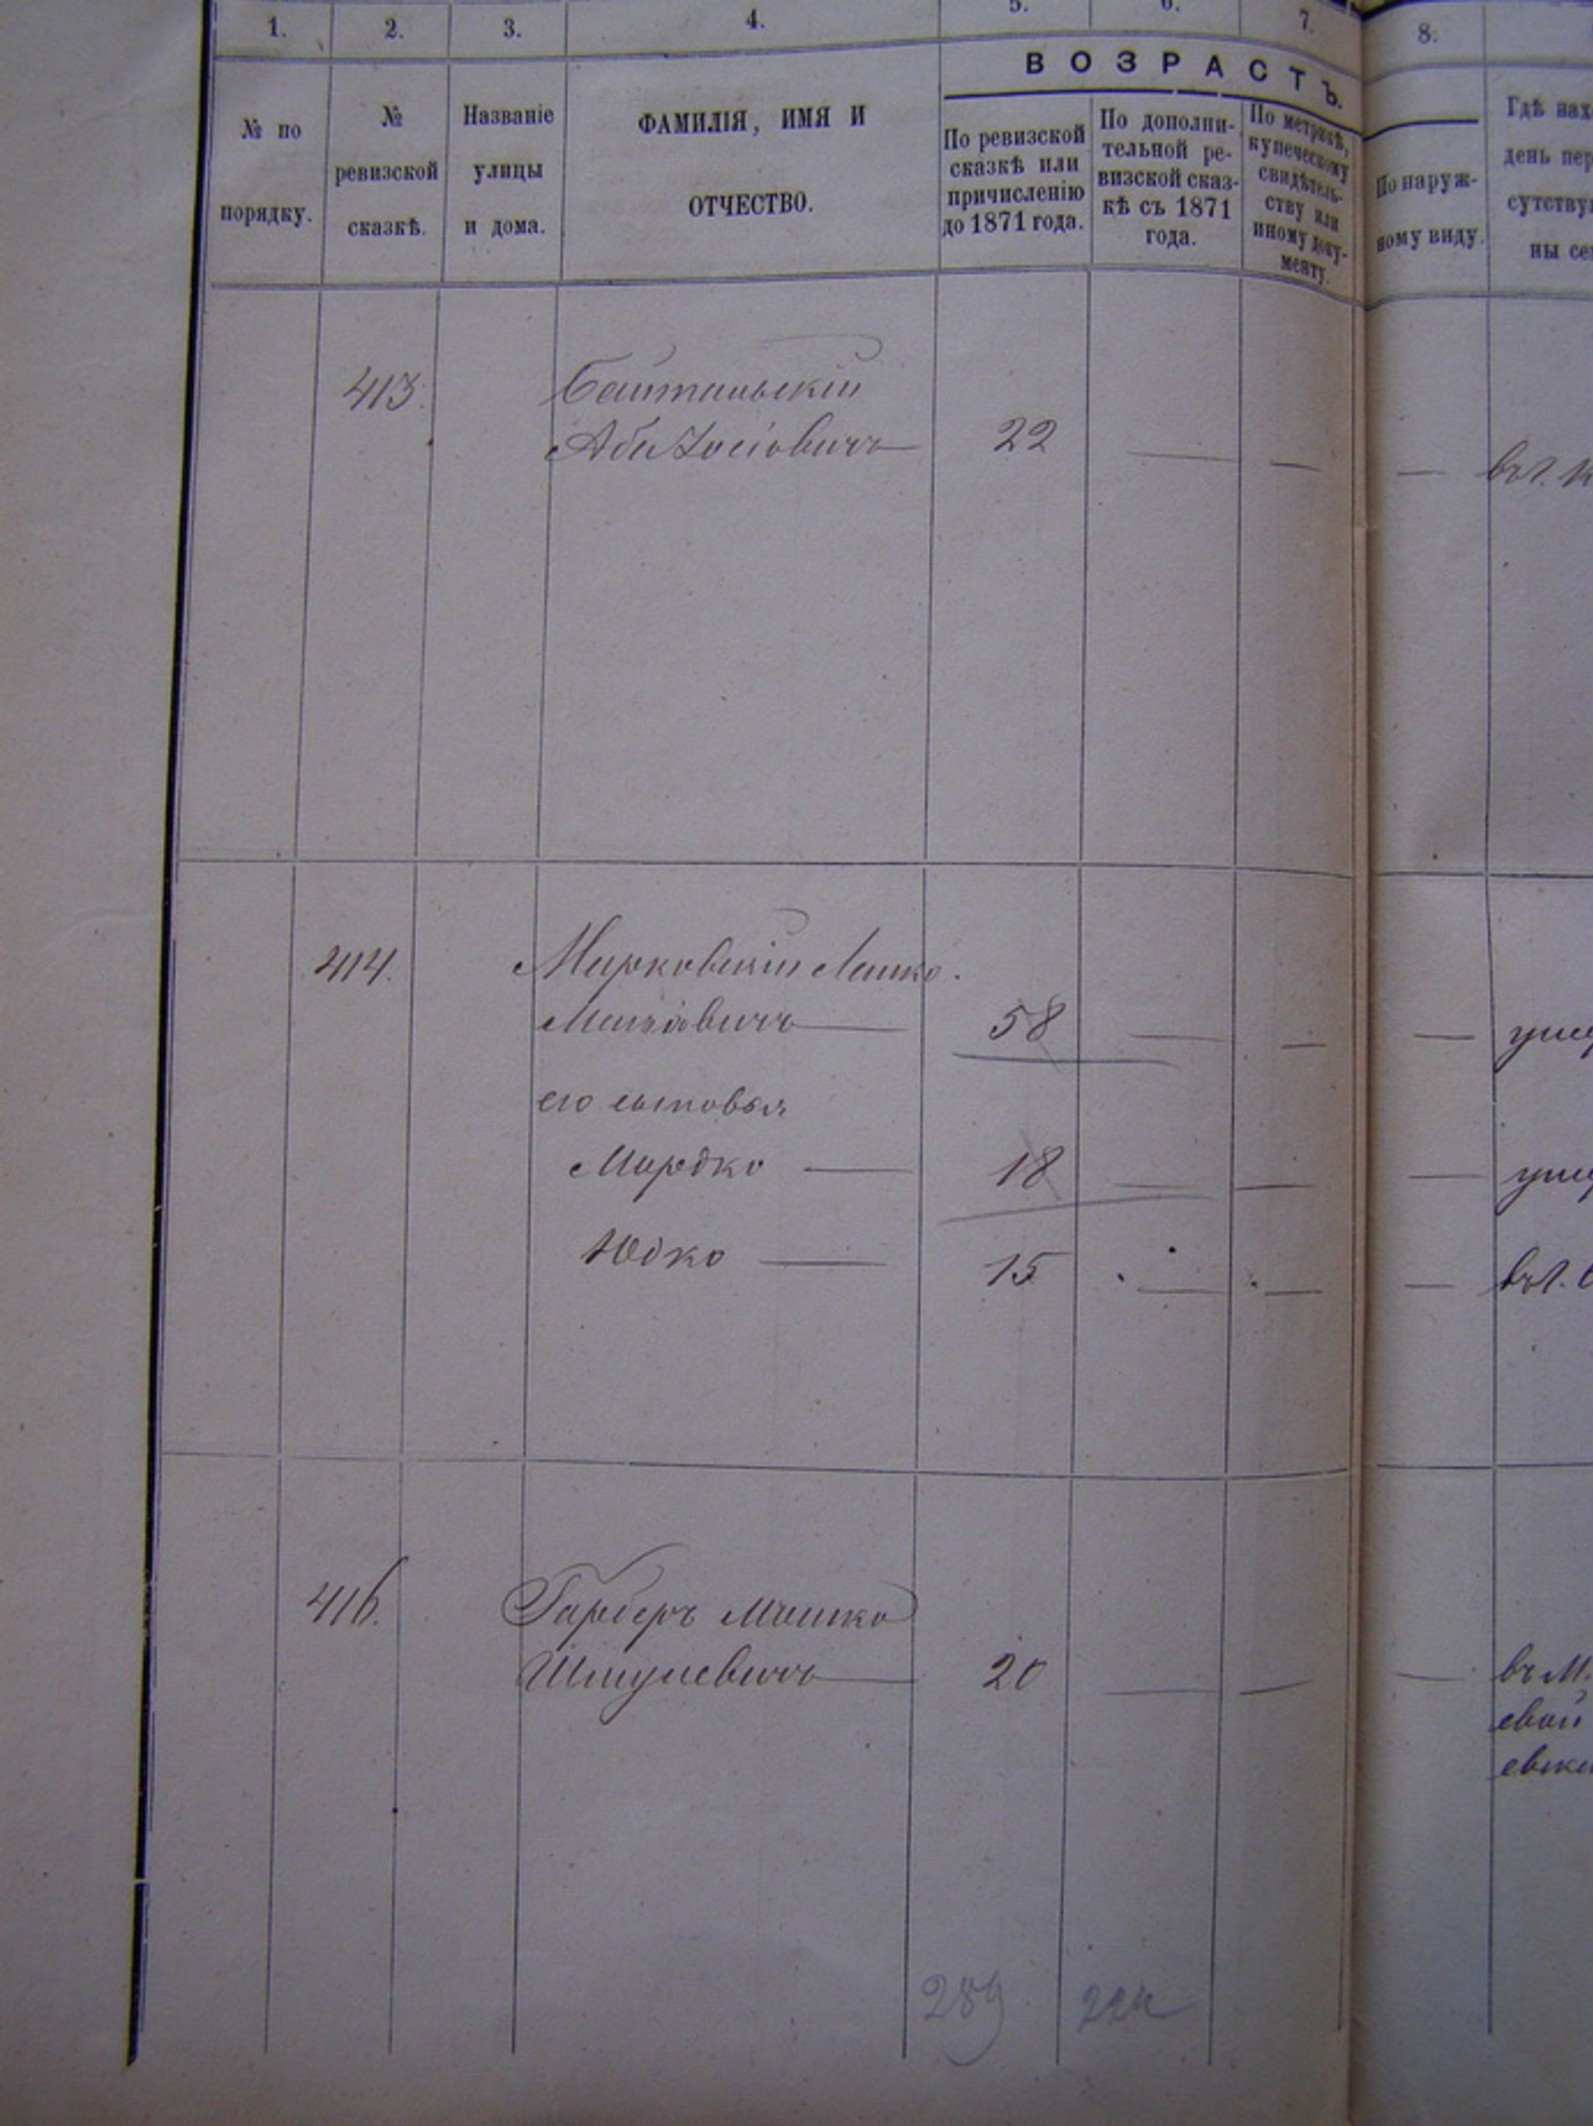 1. 2. 3. 4. 5. 6. 7. 8.
ВОЗРАСТЪ.
№ по порядку.
№ ревизской сказкѣ.
Названіе улицы и дома.
ФАМИЛІЯ, ИМЯ И ОТЧЕСТВО.
По ревизской сказкѣ или причисленію до 1871 года.
По дополни-тельной ре-визской сказ-кѣ съ 1871 года.
По метрикѣ, купеческому свидѣтель-ству или иному доку-менту.
По наруж-ному виду.
Гдѣ нах
день пер
сутству
ны се
413.
Абъ Іосіовичъ 22 — — —
414. Марковскій
Мошковичъ — 58 — — —
его сыновья
Мордко — 18 — — — уме
Юдко — 15 — — —
416. Гарберъ Мошко
Шмулевичъ — 20 — — — въ М.
289